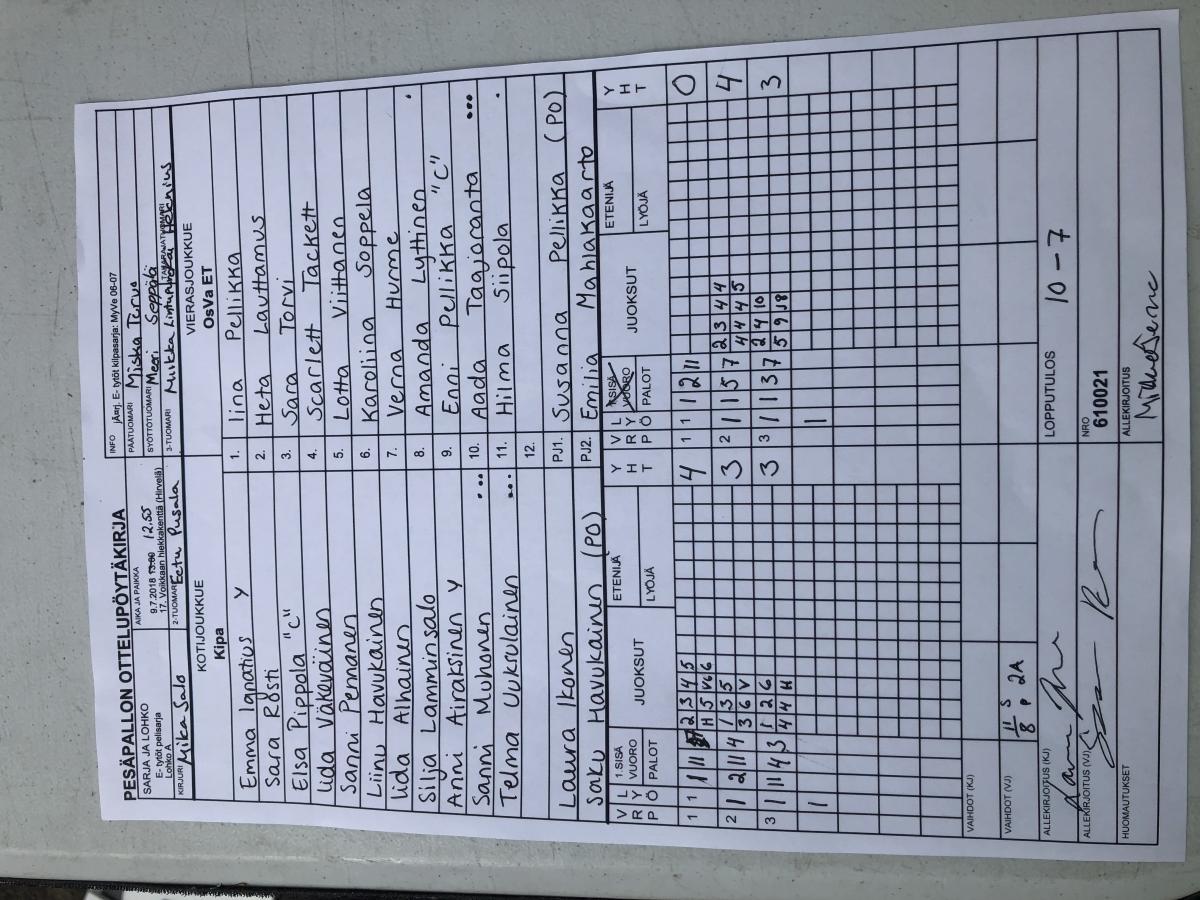 PESÄPALLON OTTELUPÖYTÄKIRJA
SARJA JA LOHKO
E- tytöt pelisarja
Lohko A
AIKA JA PAIKKA
9.7.2018 13.00 12.55
17. Voikkaan hiekkakenttä (Hirvelä)
INFO jÄrrj. E- tytöt kilpasarja: MyVe 06-07
PÄÄTUOMARI Miska Tervo
SYÖTTÖTUOMARI Meeri Seppälä
KIRJURI Mika Salo
2-TUOMARI Eetu Pusala
3-TUOMARI Miikka
TAKARAJATUOMARI
KOTIJOUKKUE
Kipa
VIERASJOUKKUE
OsVa ET
Emma Ignatius Y 1. Iina Pellikka
Sara Rösti 2. Heta Lauttamus
Elsa Pippola "C" 3. Sara Torvi
Iida Väkeväinen 4. Scarlett Tackett
Sanni Pennanen 5. Lotta Viittanen
Liinu Havukainen 6. Karoliina Soppela
Iida Alhainen 7. Verna Hurme
Silja Lamminsalo 8. Amanda Lyttinen .
Anni Airaksinen Y 9. Enni Pellikka "C"
Sanni Muhonen ... 10. Aada Taajoranta ...
Telma Uuksulainen ... 11. Hilma Siipola .
12.
Laura Ikonen PJ1. Susanna Pellikka (PO)
Saku Havukainen (PO) PJ2. Emilia Mahlakaarto
V R P L Y Ö 1.SISÄ VUORO PALOT JUOKSUT ETENIJÄ LYÖJÄ Y H T V R P L Y Ö 1.SISÄ VUORO PALOT JUOKSUT ETENIJÄ LYÖJÄ Y H T
1 1 1 11 2 3 4 5 4 1 1 1 2 11 0
H 5 V6 6
2 1 2 11 4 1 3 5 3 2 1 1 5 7 2 3 4 4 4
3 6 V 4 4 4 5
3 1 11 4 3 1 2 6 3 3 1 1 3 7 2 4 10 3
4 4 H 5 9 J8
1 1
VAIHDOT (KJ)
VAIHDOT (VJ) 11/8 S P 2A
ALLEKIRJOITUS (KJ)
LOPPUTULOS 10 - 7
ALLEKIRJOITUS (VJ)
NRO
610021
HUOMAUTUKSET
ALLEKIRJOITUS